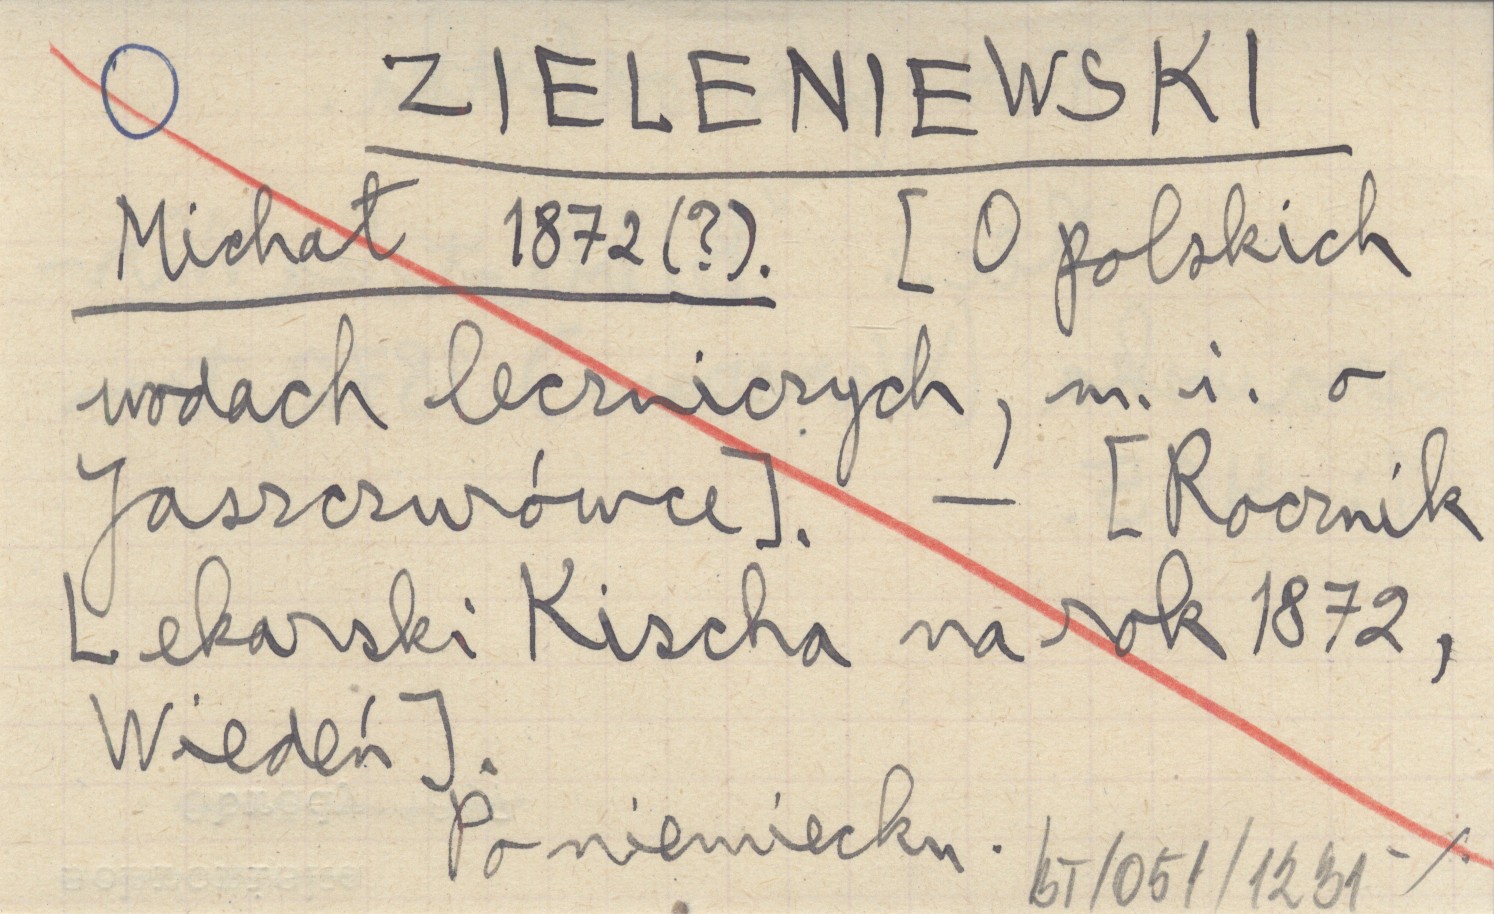 O ZIELENIEWSKI
Michał 1872(?). [O polskich
wodach leczniczych, m.i. o
Jaszczurówce]. — [Rocznik
Lekarski Kischa na rok 1872,
Wiedeń].
Po niemiecku.
BT/051/1231-/.